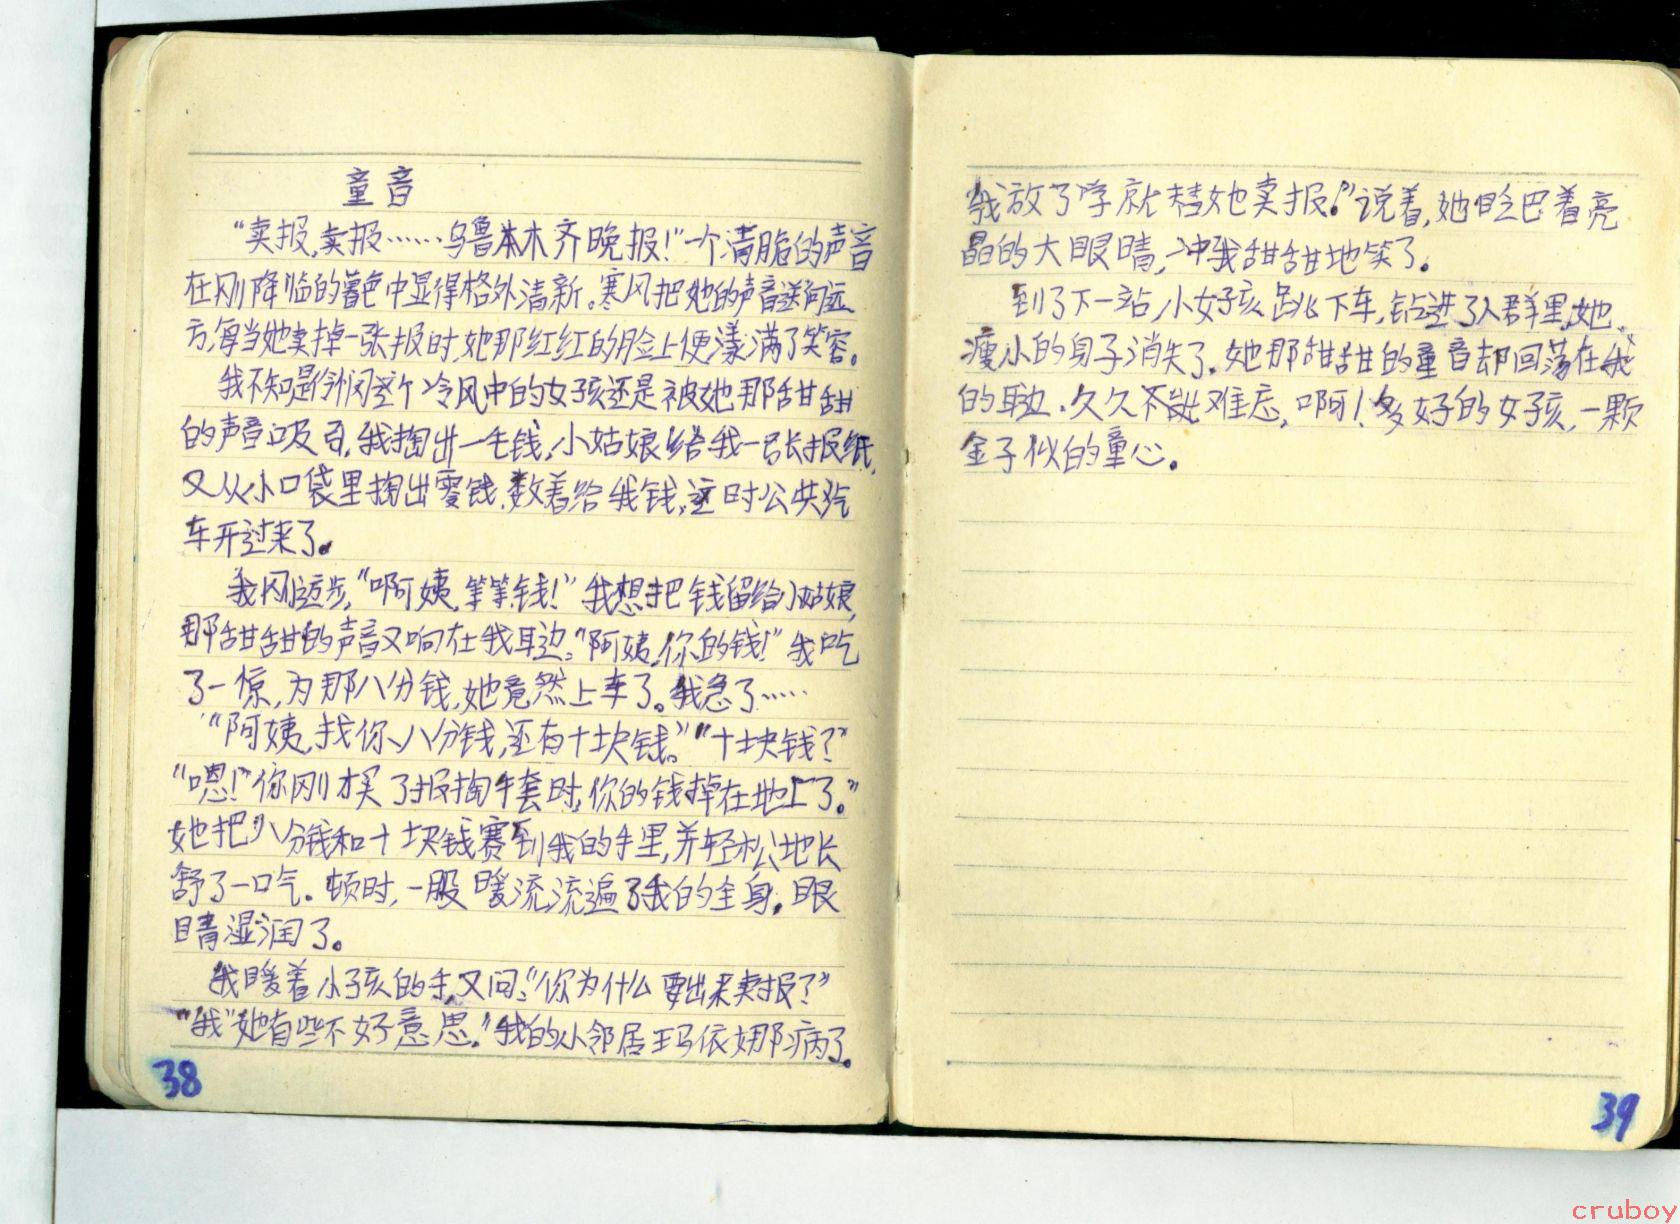 童音
“卖报,卖报……乌鲁木齐晚报!”一个清脆的声音
在刚降临的暮色中显得格外清新。寒风把她的声音送向远
方,每当她卖掉一张报时,她那红红的脸上便漾满了笑容。
我不知是怜悯这个冷风中的女孩还是被她那甜甜
的声音吸引,我掏出一毛钱,小姑娘给我一张报纸,
又从小口袋里掏出零钱,数着给我钱,这时公共汽
车开过来了。
我刚迈步,“啊姨,等等,钱!”我想把钱留给小姑娘,
那甜甜的声音又响在我耳边:“阿姨,你的钱!”我吃
了一惊,为那八分钱,她竟然上车了。我急了……
“阿姨,找你八分钱,还有十块钱。”“十块钱?”
“嗯!”你刚才买了报掏手套时,你的钱掉在地上了。”
她把八分钱和十块钱赛到我的手里,并轻松地长
舒了一口气。顿时,一股暖流流遍了我的全身,眼
睛湿润了。
我暖着小孩的手,又问:“你为什么要出来卖报?”
“我”她有些不好意思.“我的小邻居玛依娜病了。
38
我放了学就替她卖报!”说着,她眨巴着亮
晶的大眼睛,冲我甜甜地笑了。
到了下一站,小女孩跳下车,钻进了人群里,她
瘦小的身子消失了。她那甜甜的童音却回荡在我
的耳边.久久不能难忘,啊!多好的女孩,一颗
金子似的童心。
39
cruboy